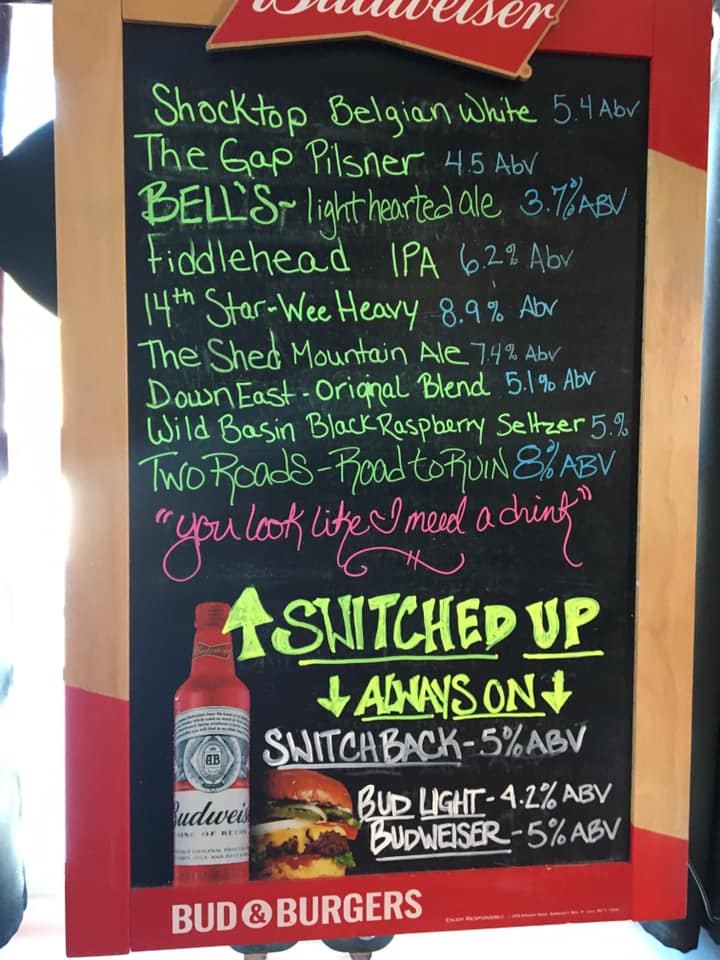 Budweiser
Shocktop Belgian White 5.4 Abv
The Gap Pilsner 4.5 Abv
BELL'S~ light hearted ale 3.7% ABV
Fiddlehead IPA 6.2% Abv
14th Star-Wee Heavy 8.9% Abv
The Shed Mountain Ale 7.4% Abv
Down East-Original Blend 5.1% Abv
Wild Basin Black Raspberry Seltzer 5.%
TWO ROADS-Road to RUIN 8% ABV
"you look like I need a drink"
↑ SWITCHED UP
↓ ALWAYS ON ↓
SWITCHBACK-5% ABV
BUD LIGHT-4.2% ABV
BUDWEISER-5% ABV
Budweiser
AB
Budweis
KING OF BEE
BUD & BURGERS
ENJOY RESPONSIBLY